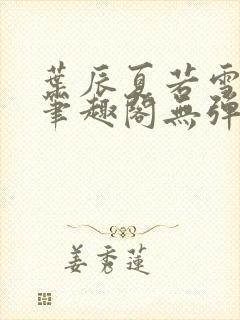 葉辰夏若雪
筆趣閣無彈
姜秀蓮